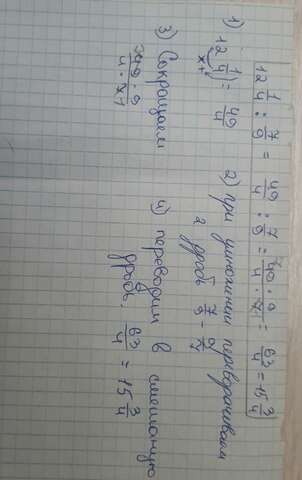 12 1/4 : 7/9 = 49/4 : 7/9 = 49 · 9 / 4 · 7 = 63/4 = 15 3/4
1) 12 1/4 = 49/4
2) при умножении переворачиваем
2 дробь 7/9 - 9/7
3) Сокращаем
49 · 9 / 4 · 7
4) переводим в смешаную
дробь. 63/4 = 15 3/4